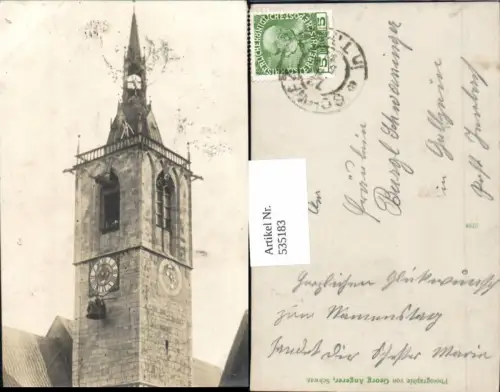 KAISERLICHE KÖNIGLICHE ÖSTERR. POST
5 5
SCHWAZ
Artikel Nr.
535183
An
Fräulein
Burgl Schweninger
in
Post Innsbruck
Herzlichen Glückwunsch
zum Namenstag
sendet Dir Schwester Marie
Photographie von Georg Angerer, Schwaz.